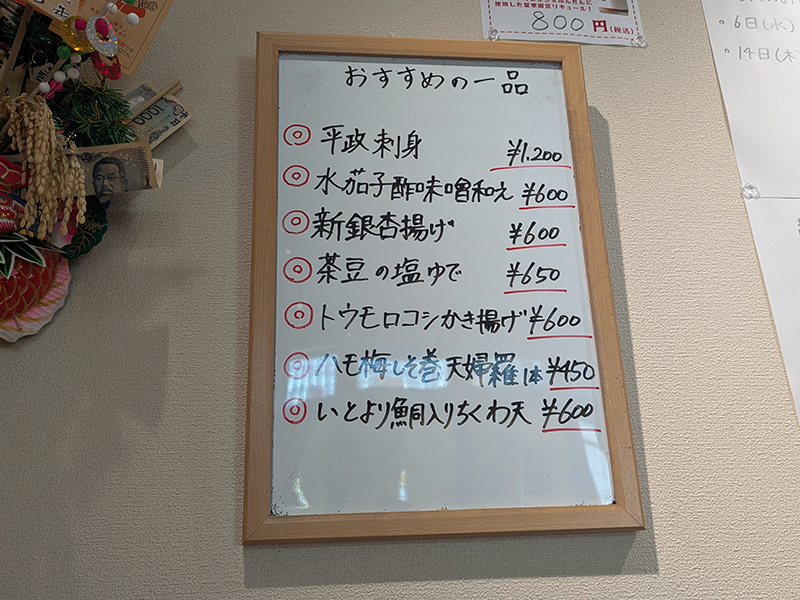 使用した夏季限定リキュール!
800円(税込)
6日(水)
14日(木
1000
おすすめの一品
◎ 平政刺身 ¥1,200
◎ 水茄子酢味噌和え ¥600
◎ 新銀杏揚げ ¥600
◎ 茶豆の塩ゆで ¥650
◎ トウモロコシかき揚げ ¥600
◎ ハモ梅しそ巻天婦羅1本 ¥450
◎ いとより鯛入りちくわ天 ¥600